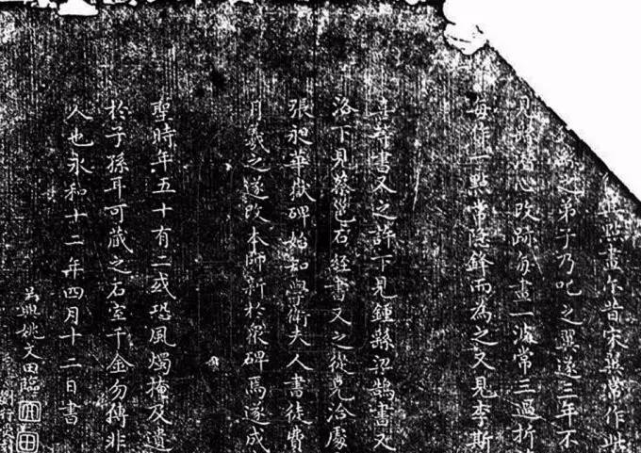 點畫尔昔宋翼常作此
之弟子乃叱之翼遂三年不
見潛心改跡每畫一波常三過折
每作一點常隱鋒而為之又見李斯
喜等書又之許下見鍾繇梁鵠書又
洛下見蔡邕石經書又之從兄洽處
張昶華嶽碑始知學衛夫人書徒費
月羲之遂改本師新於眾碑焉遂成
聖時年五十有二或恐風燭掩及遺
於子孫耳可藏之石室千金勿傳非
人也永和十二年四月十二日書
吳興姚文田臨